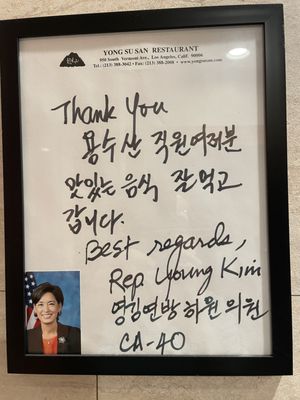 YONG SU SAN RESTAURANT
950 South Vermont Ave., Los Angeles, Calif. 90006
Tel.: (213) 388-3042 • Fax: (213) 388-2008 • www.yongsusan.com
Thank You
용수산 직원여러분
맛있는 음식 잘 먹고
갑니다.
Best regards,
Rep Young Kim
영김연방 하원 의원
CA-40